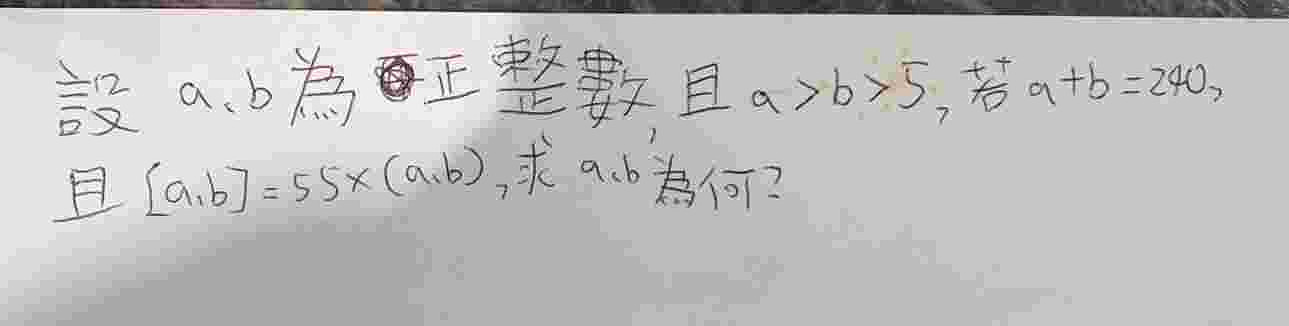 設 a、b 為正整數，且 a>b>5，若 a+b=240，
且 [a,b]=55×(a,b)，求 a、b 為何？